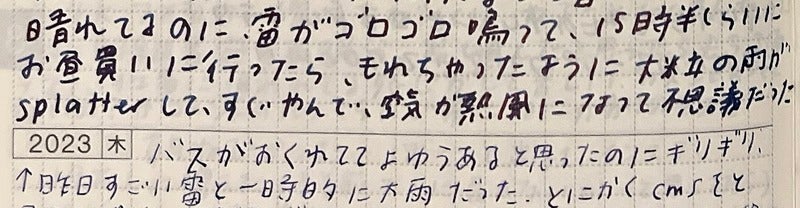 晴れてるのに、雷がゴロゴロ鳴って、15時半くらいに
お昼買いに行ったら、もれちゃったように大粒の雨が
splatterして、すぐやんで、空気が熱風になって不思議だった
2023 木 バスがおくれててよゆうあると思ったのにギリギリ、
↑昨日すごい雷と一時的に大雨だった。とにかく cmsをと